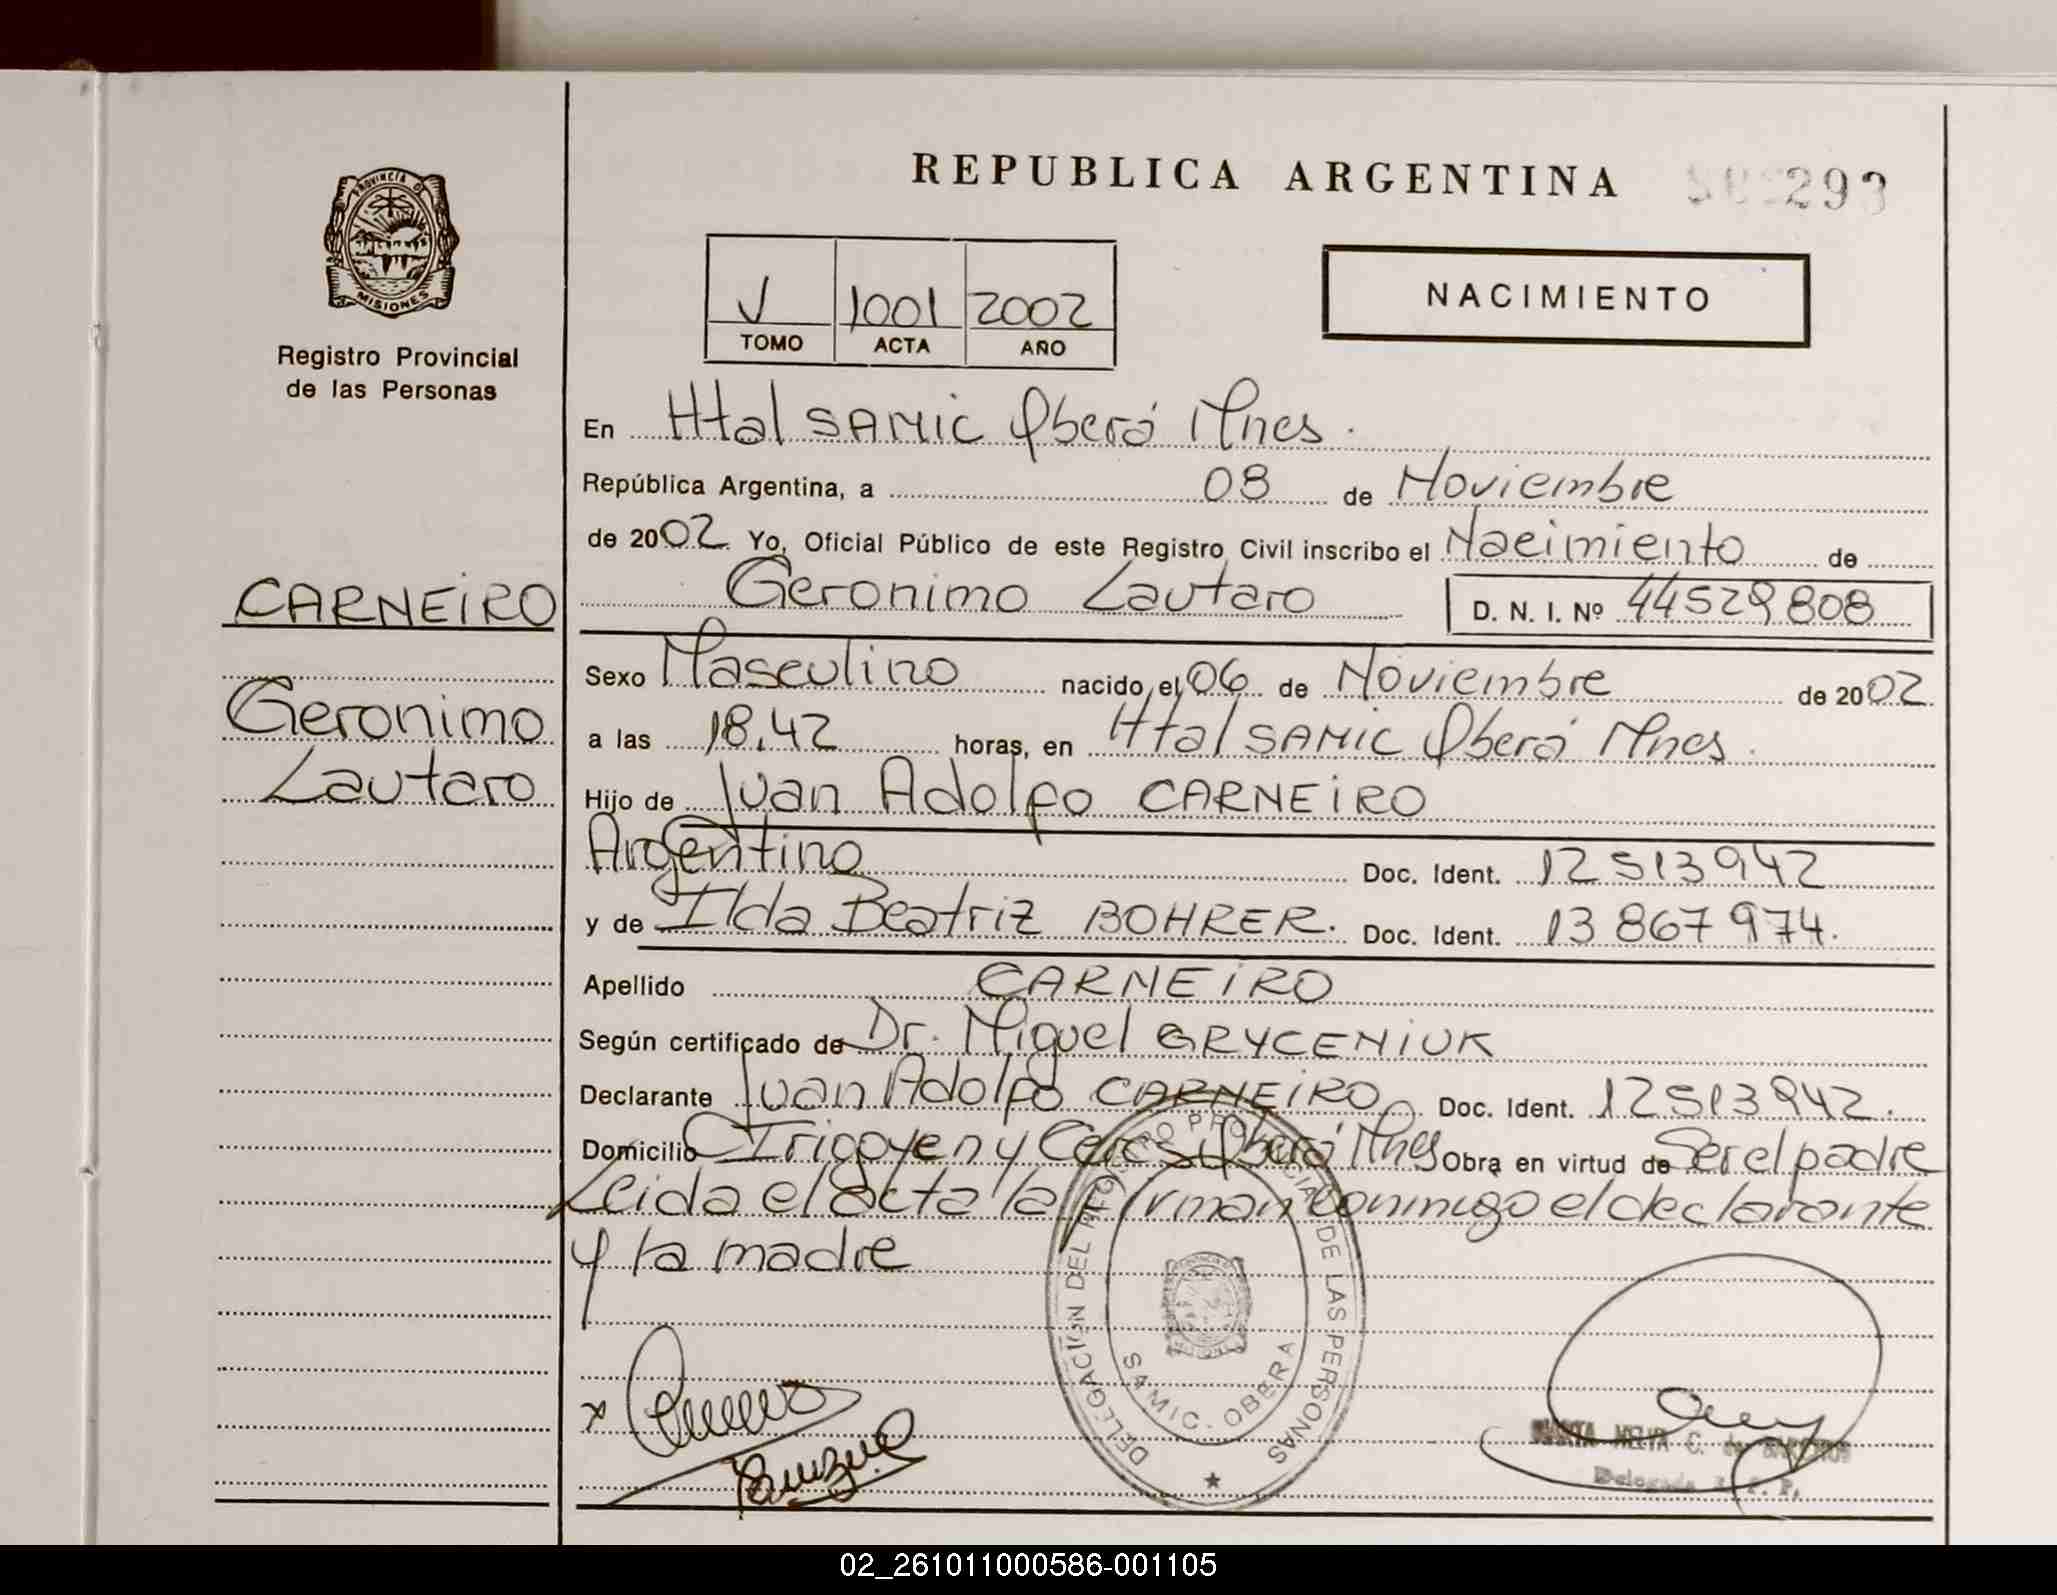 REPUBLICA ARGENTINA
293
PROVINCIA DE
MISIONES
Registro Provincial
de las Personas
V 1001 2002
TOMO ACTA AÑO
NACIMIENTO
En Htal SAMIC Oberá Mnes.
República Argentina, a 08 de Noviembre
de 2002 Yo, Oficial Público de este Registro Civil inscribo el Nacimiento de
CARNEIRO
Geronimo Lautaro D. N. I. Nº 44529808
Sexo Masculino nacido el 06 de Noviembre de 2002
Geronimo
a las 18,42 horas, en Htal SAMIC Oberá Mnes.
Lautaro
Hijo de Juan Adolfo CARNEIRO
Argentino Doc. Ident. 12513942
y de Ilda Beatriz BOHRER. Doc. Ident. 13867974.
Apellido CARNEIRO
Según certificado de Dr. Miguel GRYCENIUK
Declarante Juan Adolfo CARNEIRO Doc. Ident. 12513942.
Domicilio Irigoyen y Ceres Oberá Mnes Obra en virtud de Ser el padre
Leida el acta la firman conmigo el declarante
y la madre
DELEGACION DEL REGISTRO PROVINCIAL DE LAS PERSONAS
SAMIC. OBERA
C. de
Delegada R. P. P.
02_261011000586-001105